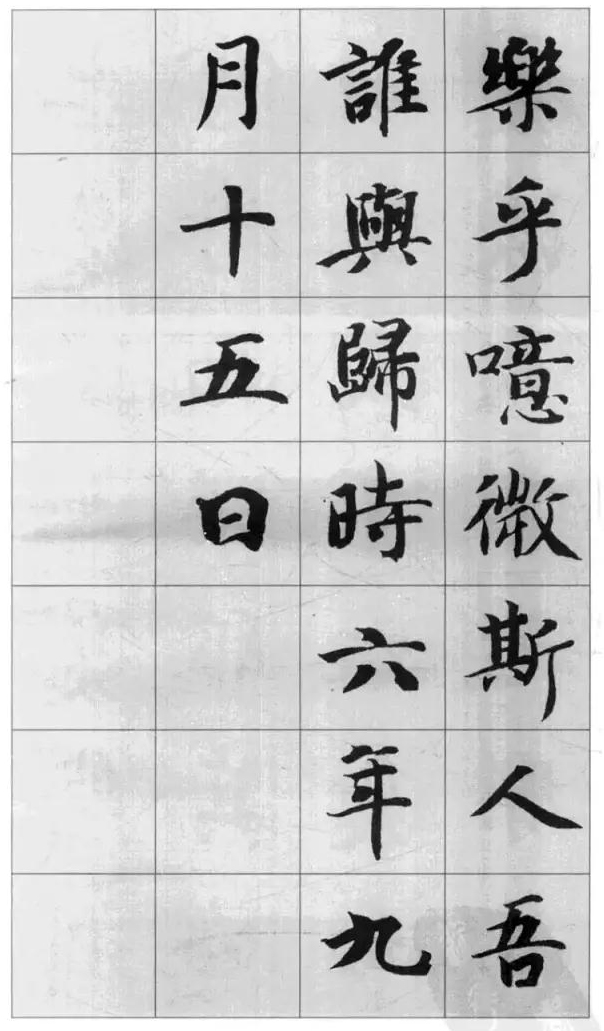 樂乎噫微斯人吾
誰與歸時六年九
月十五日